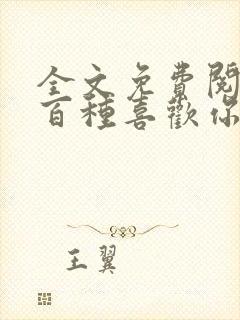 全文免費閱
百種喜歡你
王翼